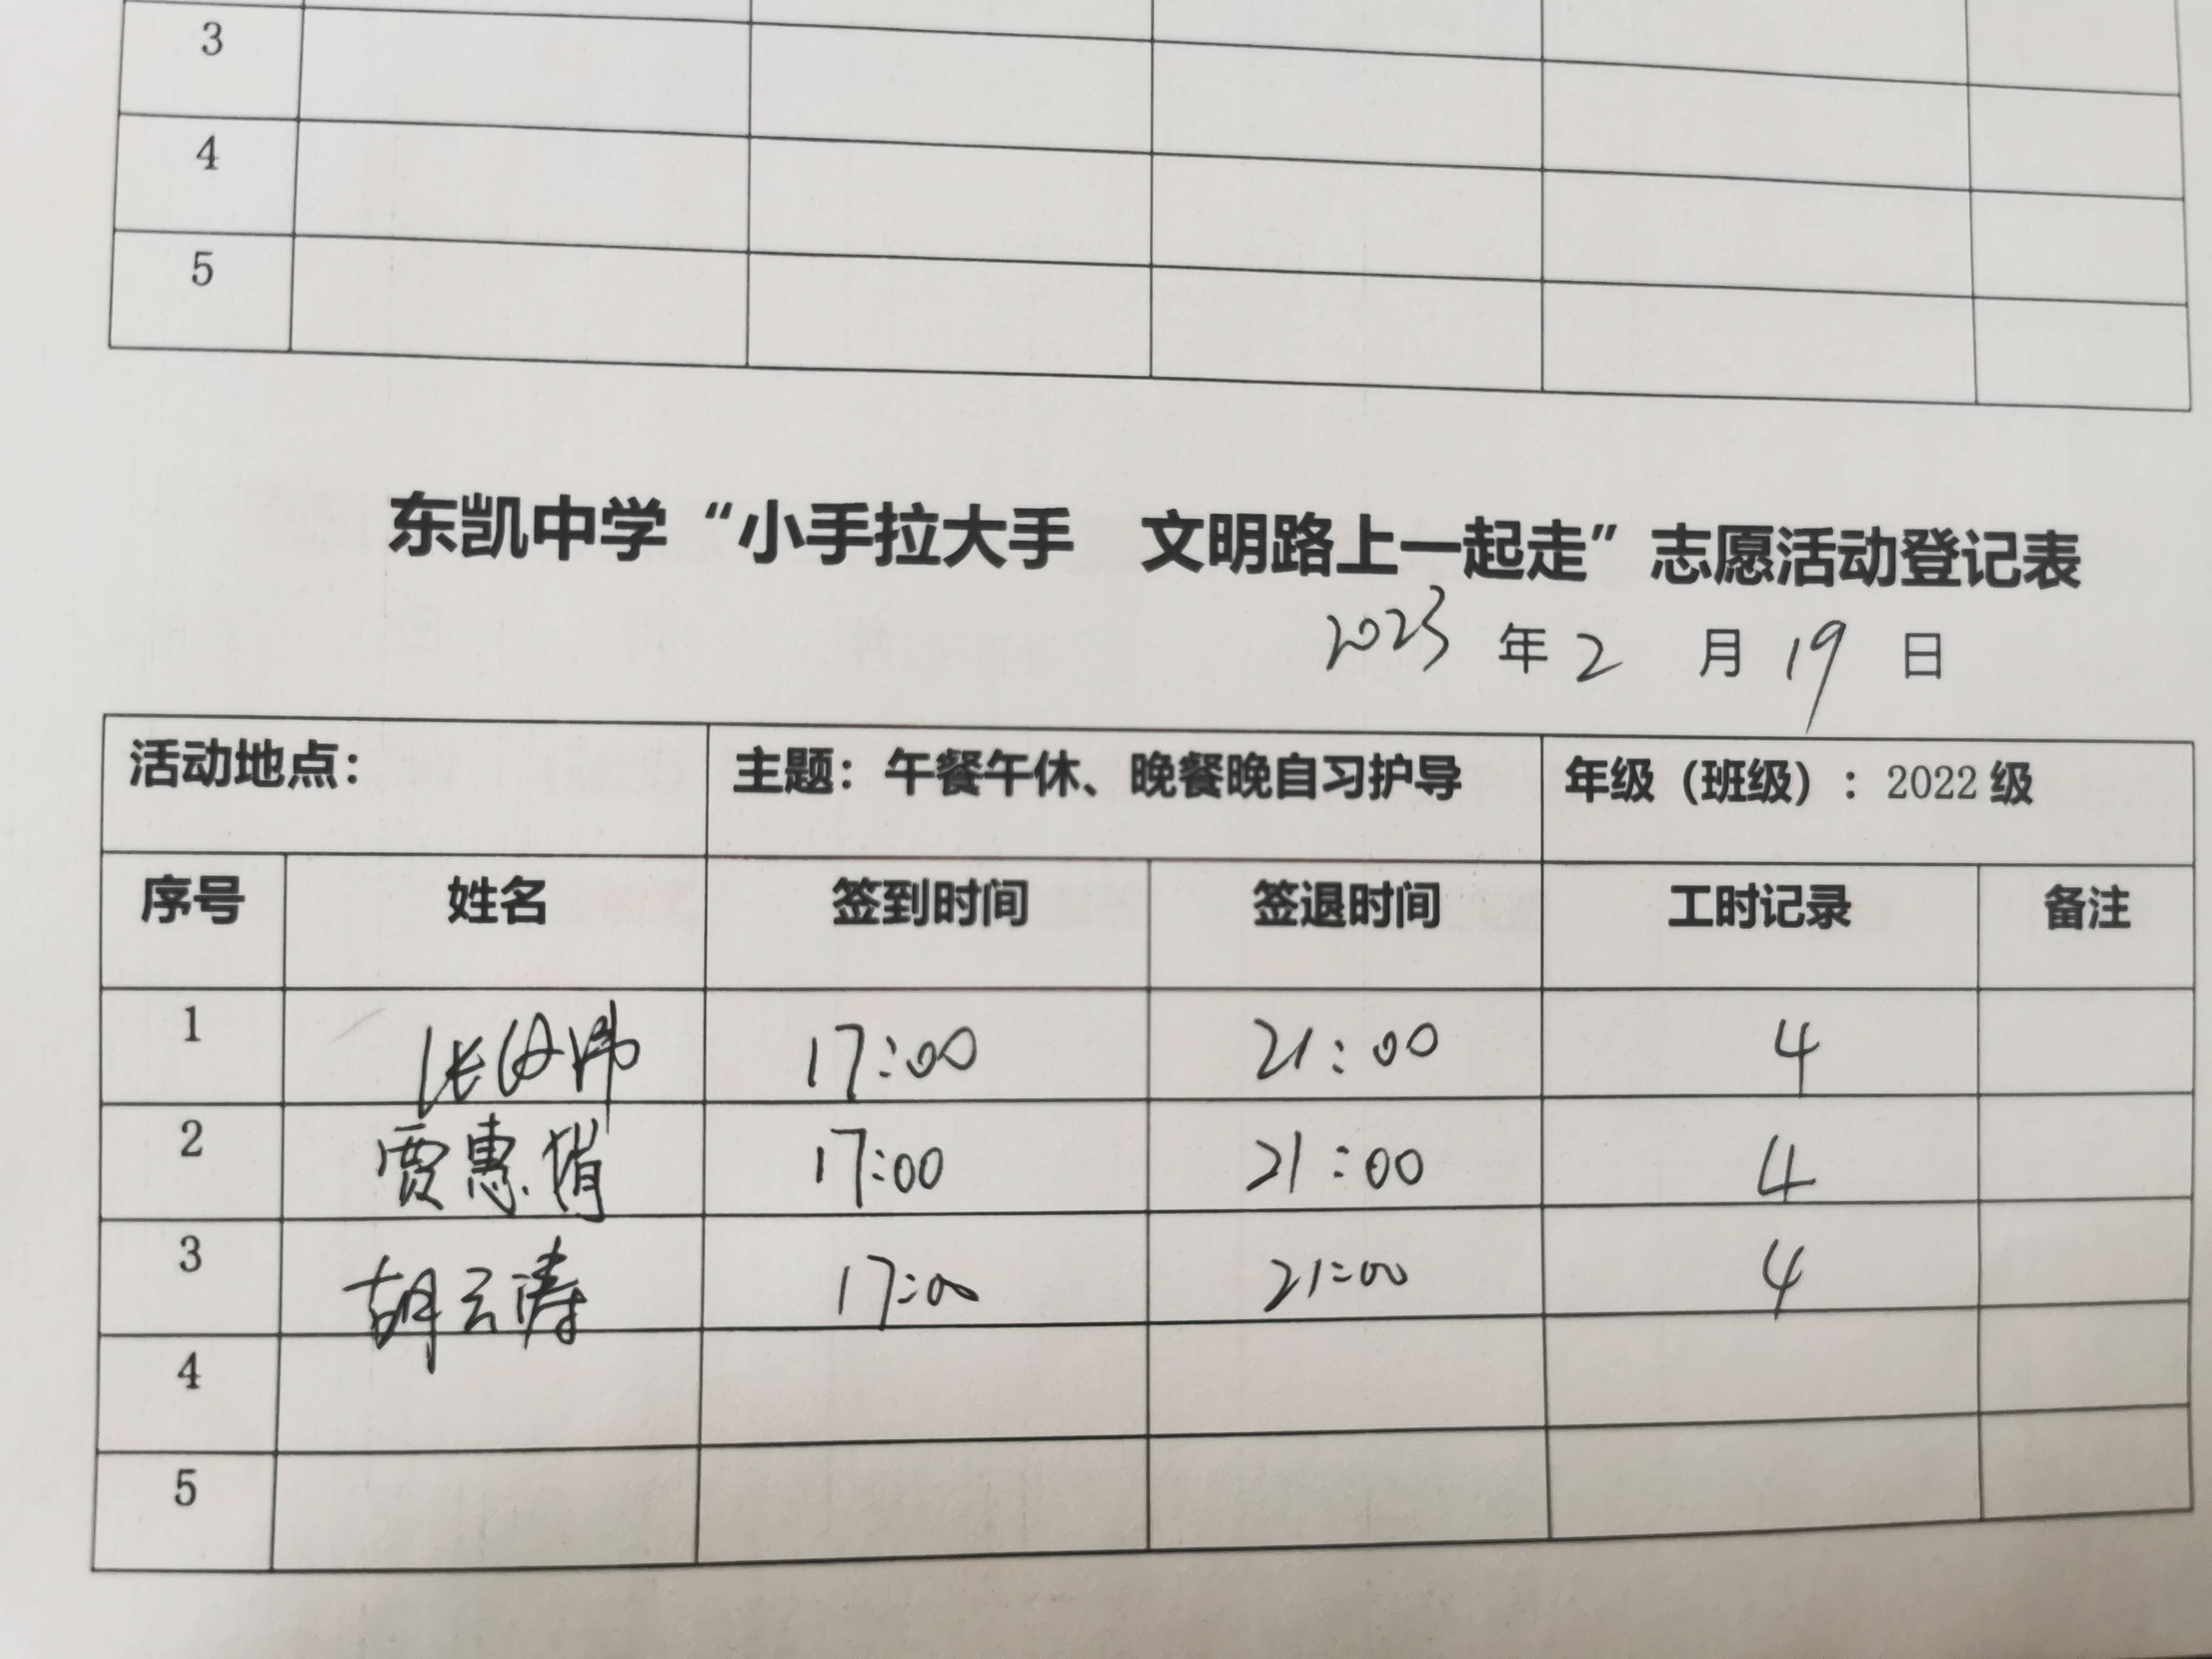 3
4
5
东凯中学“小手拉大手 文明路上一起走”志愿活动登记表
2023 年 2 月 19 日
活动地点： 主题：午餐午休、晚餐晚自习护导 年级（班级）：2022 级
序号 姓名 签到时间 签退时间 工时记录 备注
1 17:00 21:00 4
2 贾惠 17:00 21:00 4
3 胡云涛 17:00 21:00 4
4
5